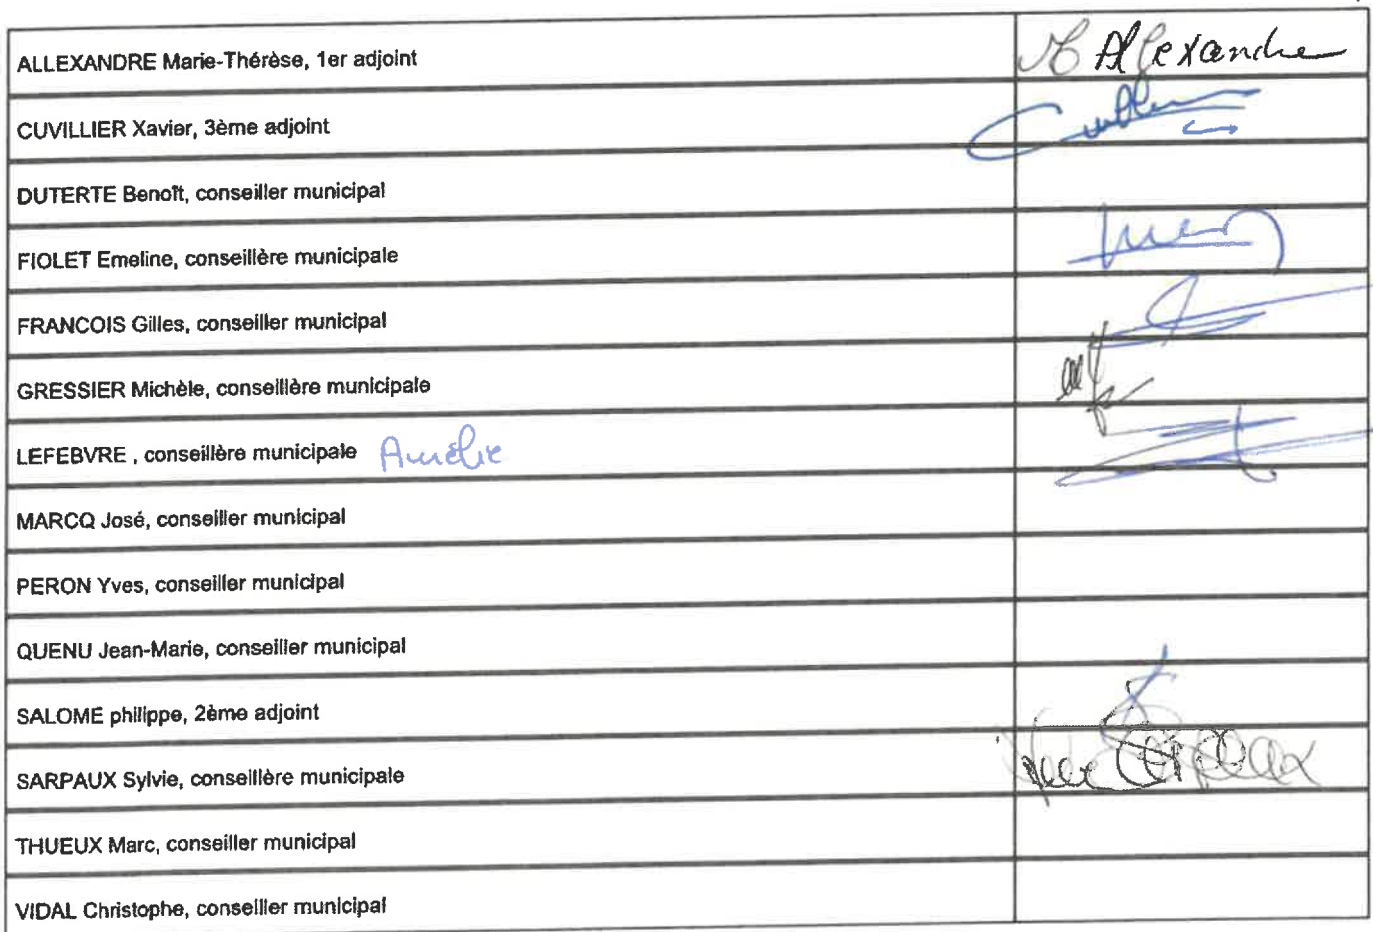 ALLEXANDRE Marie-Thérèse, 1er adjoint
Allexandre
CUVILLIER Xavier, 3ème adjoint
DUTERTE Benoît, conseiller municipal
FIOLET Emeline, conseillère municipale
FRANCOIS Gilles, conseiller municipal
GRESSIER Michèle, conseillère municipale
LEFEBVRE , conseillère municipale Aurélie
MARCQ José, conseiller municipal
PERON Yves, conseiller municipal
QUENU Jean-Marie, conseiller municipal
SALOME philippe, 2ème adjoint
SARPAUX Sylvie, conseillère municipale
THUEUX Marc, conseiller municipal
VIDAL Christophe, conseiller municipal